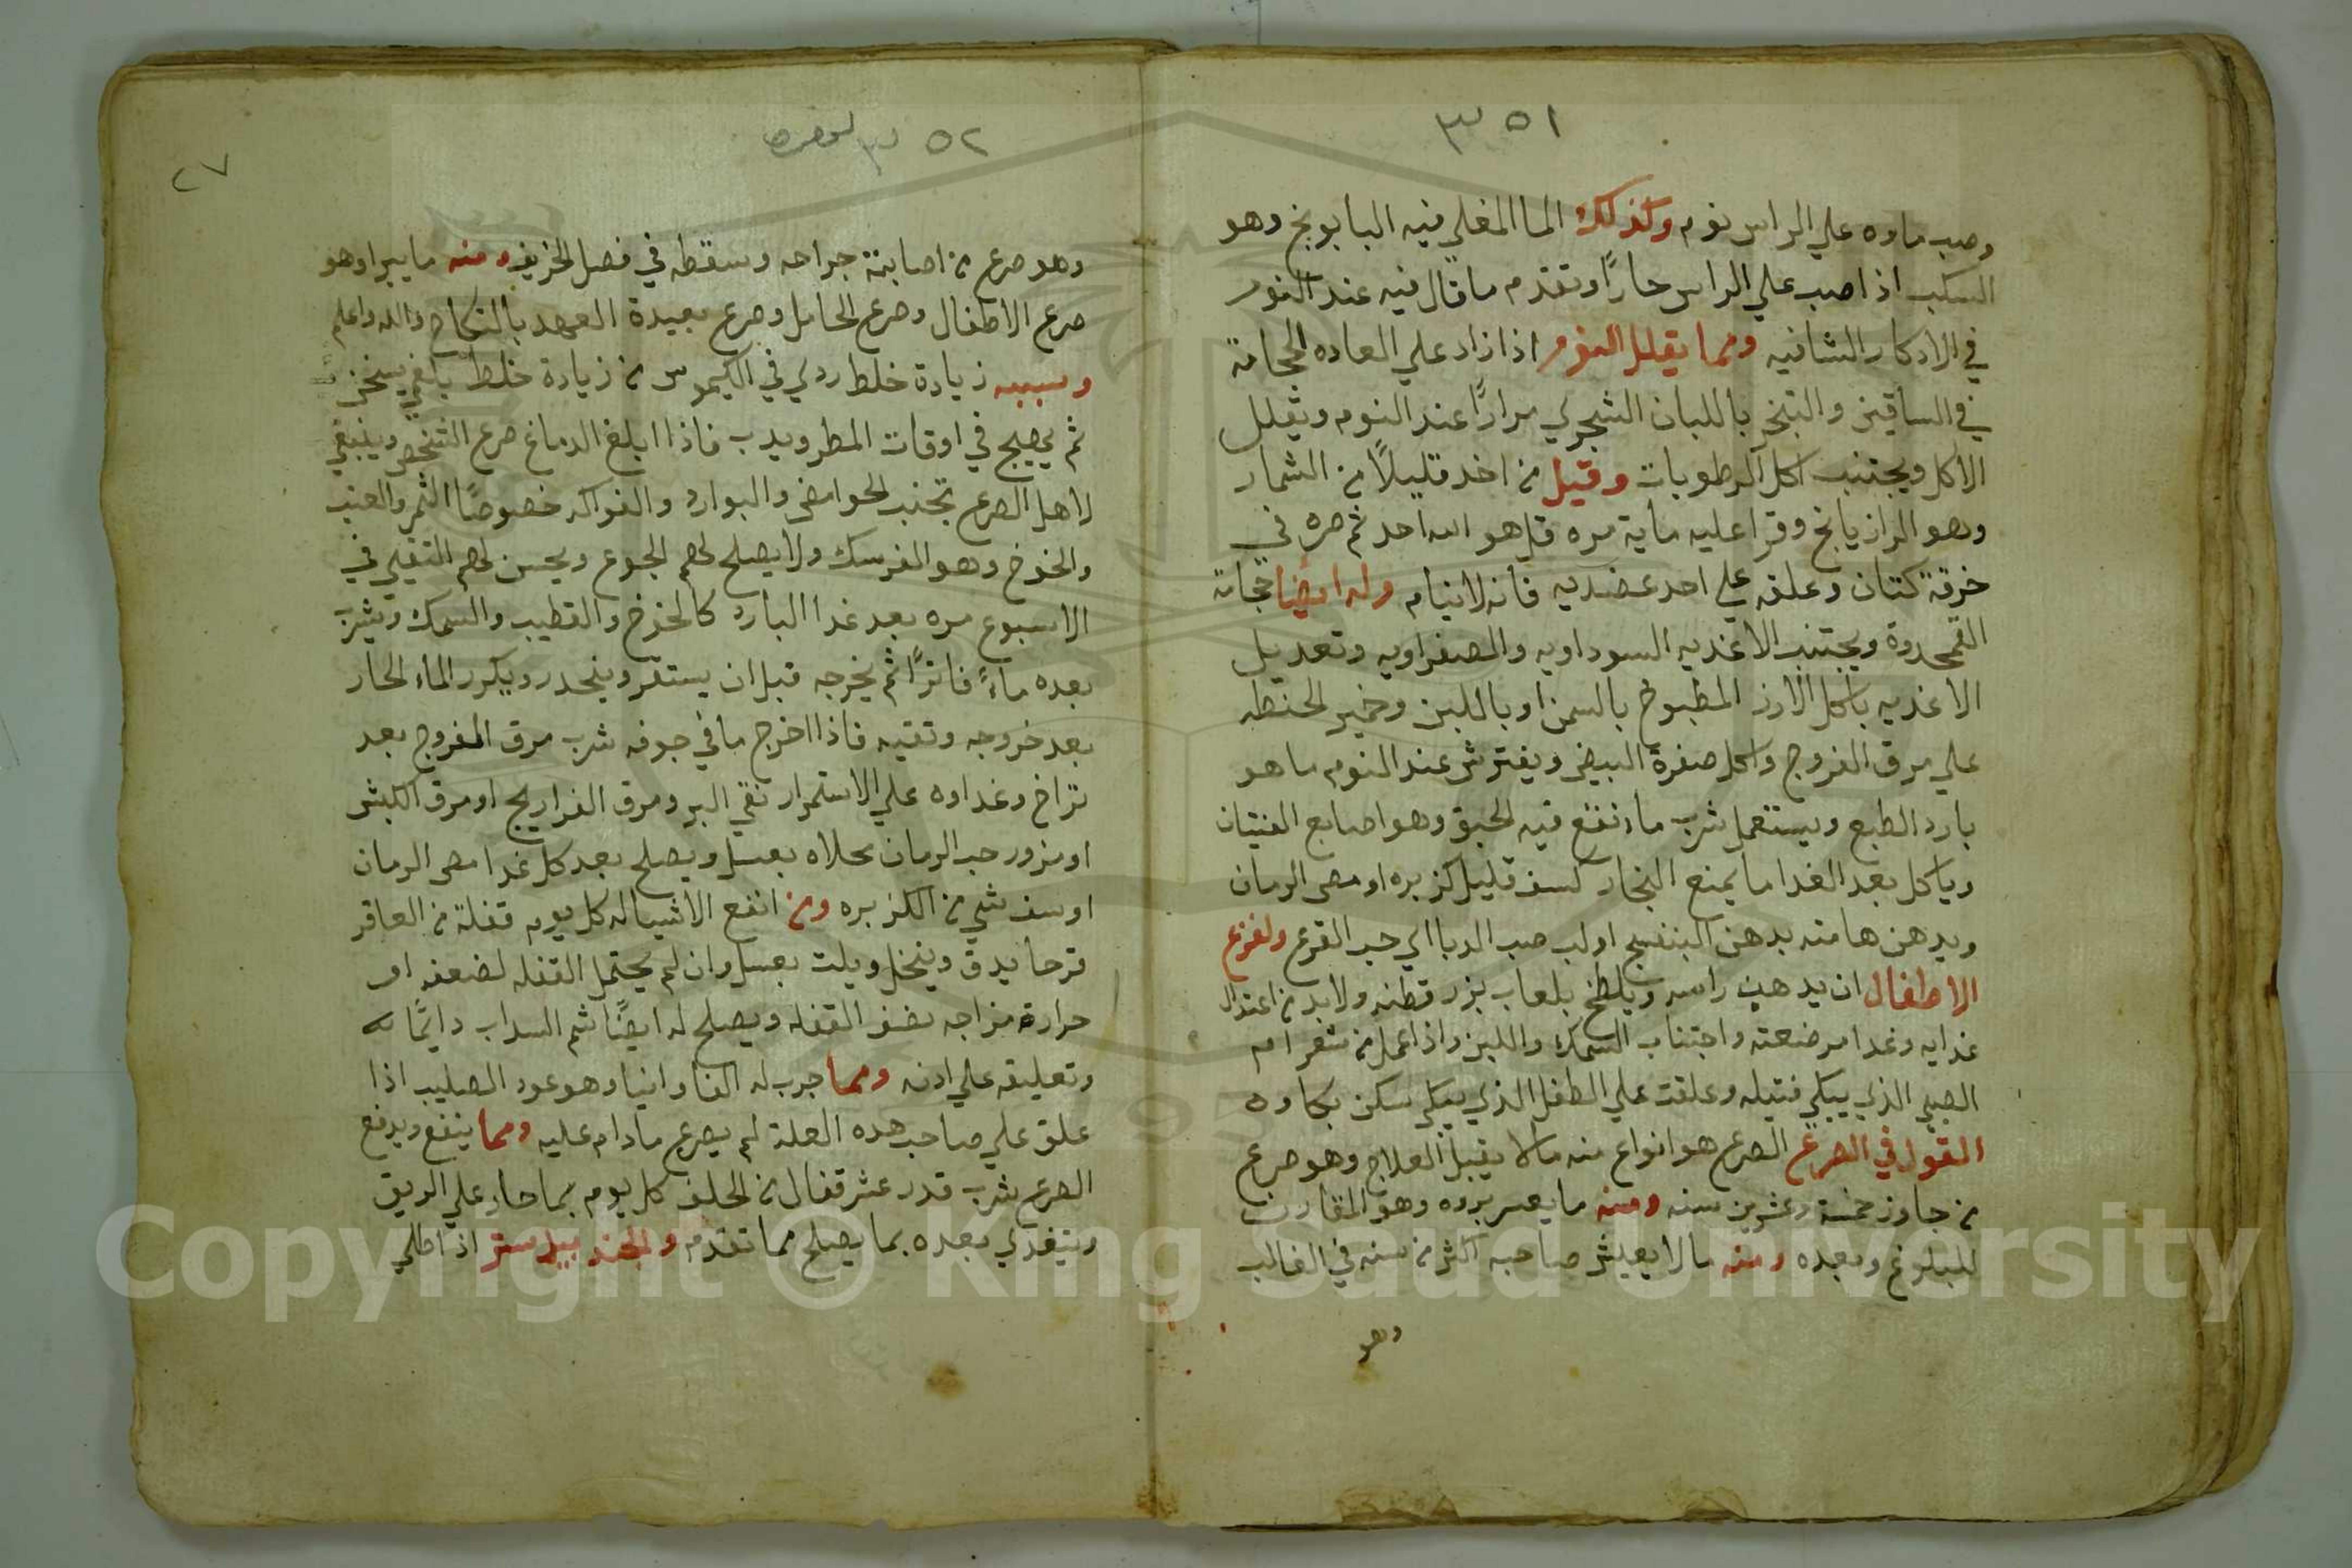 ٥١
وصب ماوه علي الراس نوم وكذلك الما المغلي فيه البابونج وهو
السكب اذا صب علي الراس حارًا وتقدم ما قال فيه عند النوم
في الاذكار الشافيه ومما يقلل النوم اذا زاد علي العاده الحجامة
في الساقين والتبخر باللبان الشجري مرارًا عند النوم وتقلل
الاكل ويجتنب اكل الرطوبات وقيل من اخد قليلًا من الشمار
وهو الرازيانج وقرا عليه ماية مره قل هو الله احد ثم صره في
خرقة كتان وعلقه علي احد عضديه فانه لا ينام وله ايضا حجامة
القمحدوة ويجتنب الاغديه السوداويه والصفراويه وتعديل
الاغديه باكل الارز المطبوخ بالسمن او باللبن وخمير الحنطه
علي مرق الفروج واكل صفرة البيض ويفترش عند النوم ما هو
بارد الطبع ويستعمل شرب ماء نقع فيه الحبق وهو اصابع الفتيان
وياكل بعد الغدا ما يمنع البخار كسف قليل كزبره او مص الرمان
ويدهن هامته بدهن البنفسج او لب حب الدبا اي حب القرع ولفزع
الاطفال ان يدهن راسه ويلطخ بلعاب بزر قطنه ولا بد من اعتدال
غدايه وغدا مرضعته واجتناب السمك واللبن واذا عمل من شعر ام
الصبي الذي يبكي فتيله وعلقت علي الطفل الذي يبكي سكن بكاوه
القول في الصرع الصرع هو انواع منه ما لا يقبل العلاج وهو صرع
من جاوز خمسة وعشرين سنه ومنه ما يعسر بروه وهو المقارن
للبلوغ وبعده ومنه ما لا يعيش صاحبه اكثر من سنه في الغالب
وهو
٥٢
٢٧
وهو صرع من اصابته جراحه وسقطه في فصل الخريف ومنه ما يبرا وهو
صرع الاطفال وصرع الحامل وصرع بعيدة العهد بالنكاح والله اعلم
وسببه زيادة خلط ردي في الكيموس من زيادة خلط بلغمي يسخن
ثم يهيج في اوقات المطر ويدب فاذا ابلغ الدماغ صرع الشخص وينبغي
لاهل الصرع تجنب الحوامض والبوارد والفواكه خصوصًا الثمر والعنب
والخوخ وهو الفرسك ولا يصلح لهم الجوع ويحسن لهم التقيي في
الاسبوع مره بعد غدا البارد كالخوخ والقطيب والسمك ويشرب
بعده ماءً فاترًا ثم يخرجه قبل ان يستقر وينحدر ويكرر الماء الحار
بعد خروجه وتقيه فاذا اخرج ما في جوفه شرب مرق الفروج بعد
تراخ وغداوه علي الاستمرار نقي البر ومرق الفراريج او مرق الكبش
او مزور حب الرمان محلاه بعسل ويصلح بعد كل غدا مص الرمان
او سف شي من الكزبره ومن انفع الاشيا له كل يوم قفلة من العاقر
قرحا يدق وينخل ويلت بعسل وان لم يحتمل القفله لضعفه او
حرارة مزاجه نصف القفله ويصلح له ايضًا شم السداب دايمًا
وتعليقه علي ادنه ومما جرب له الفاوانيا وهو عود الصليب اذا
علق علي صاحب هده العلة لم يصرع مادام عليه ومما ينفع ويدفع
الصرع شرب قدر عشر قفال من الحلف كل يوم بما حار علي الريق
ويتغدي بعده بما يصلح مما تقدم والجند بيدستر اذا طلي
Copyright © King Saud University